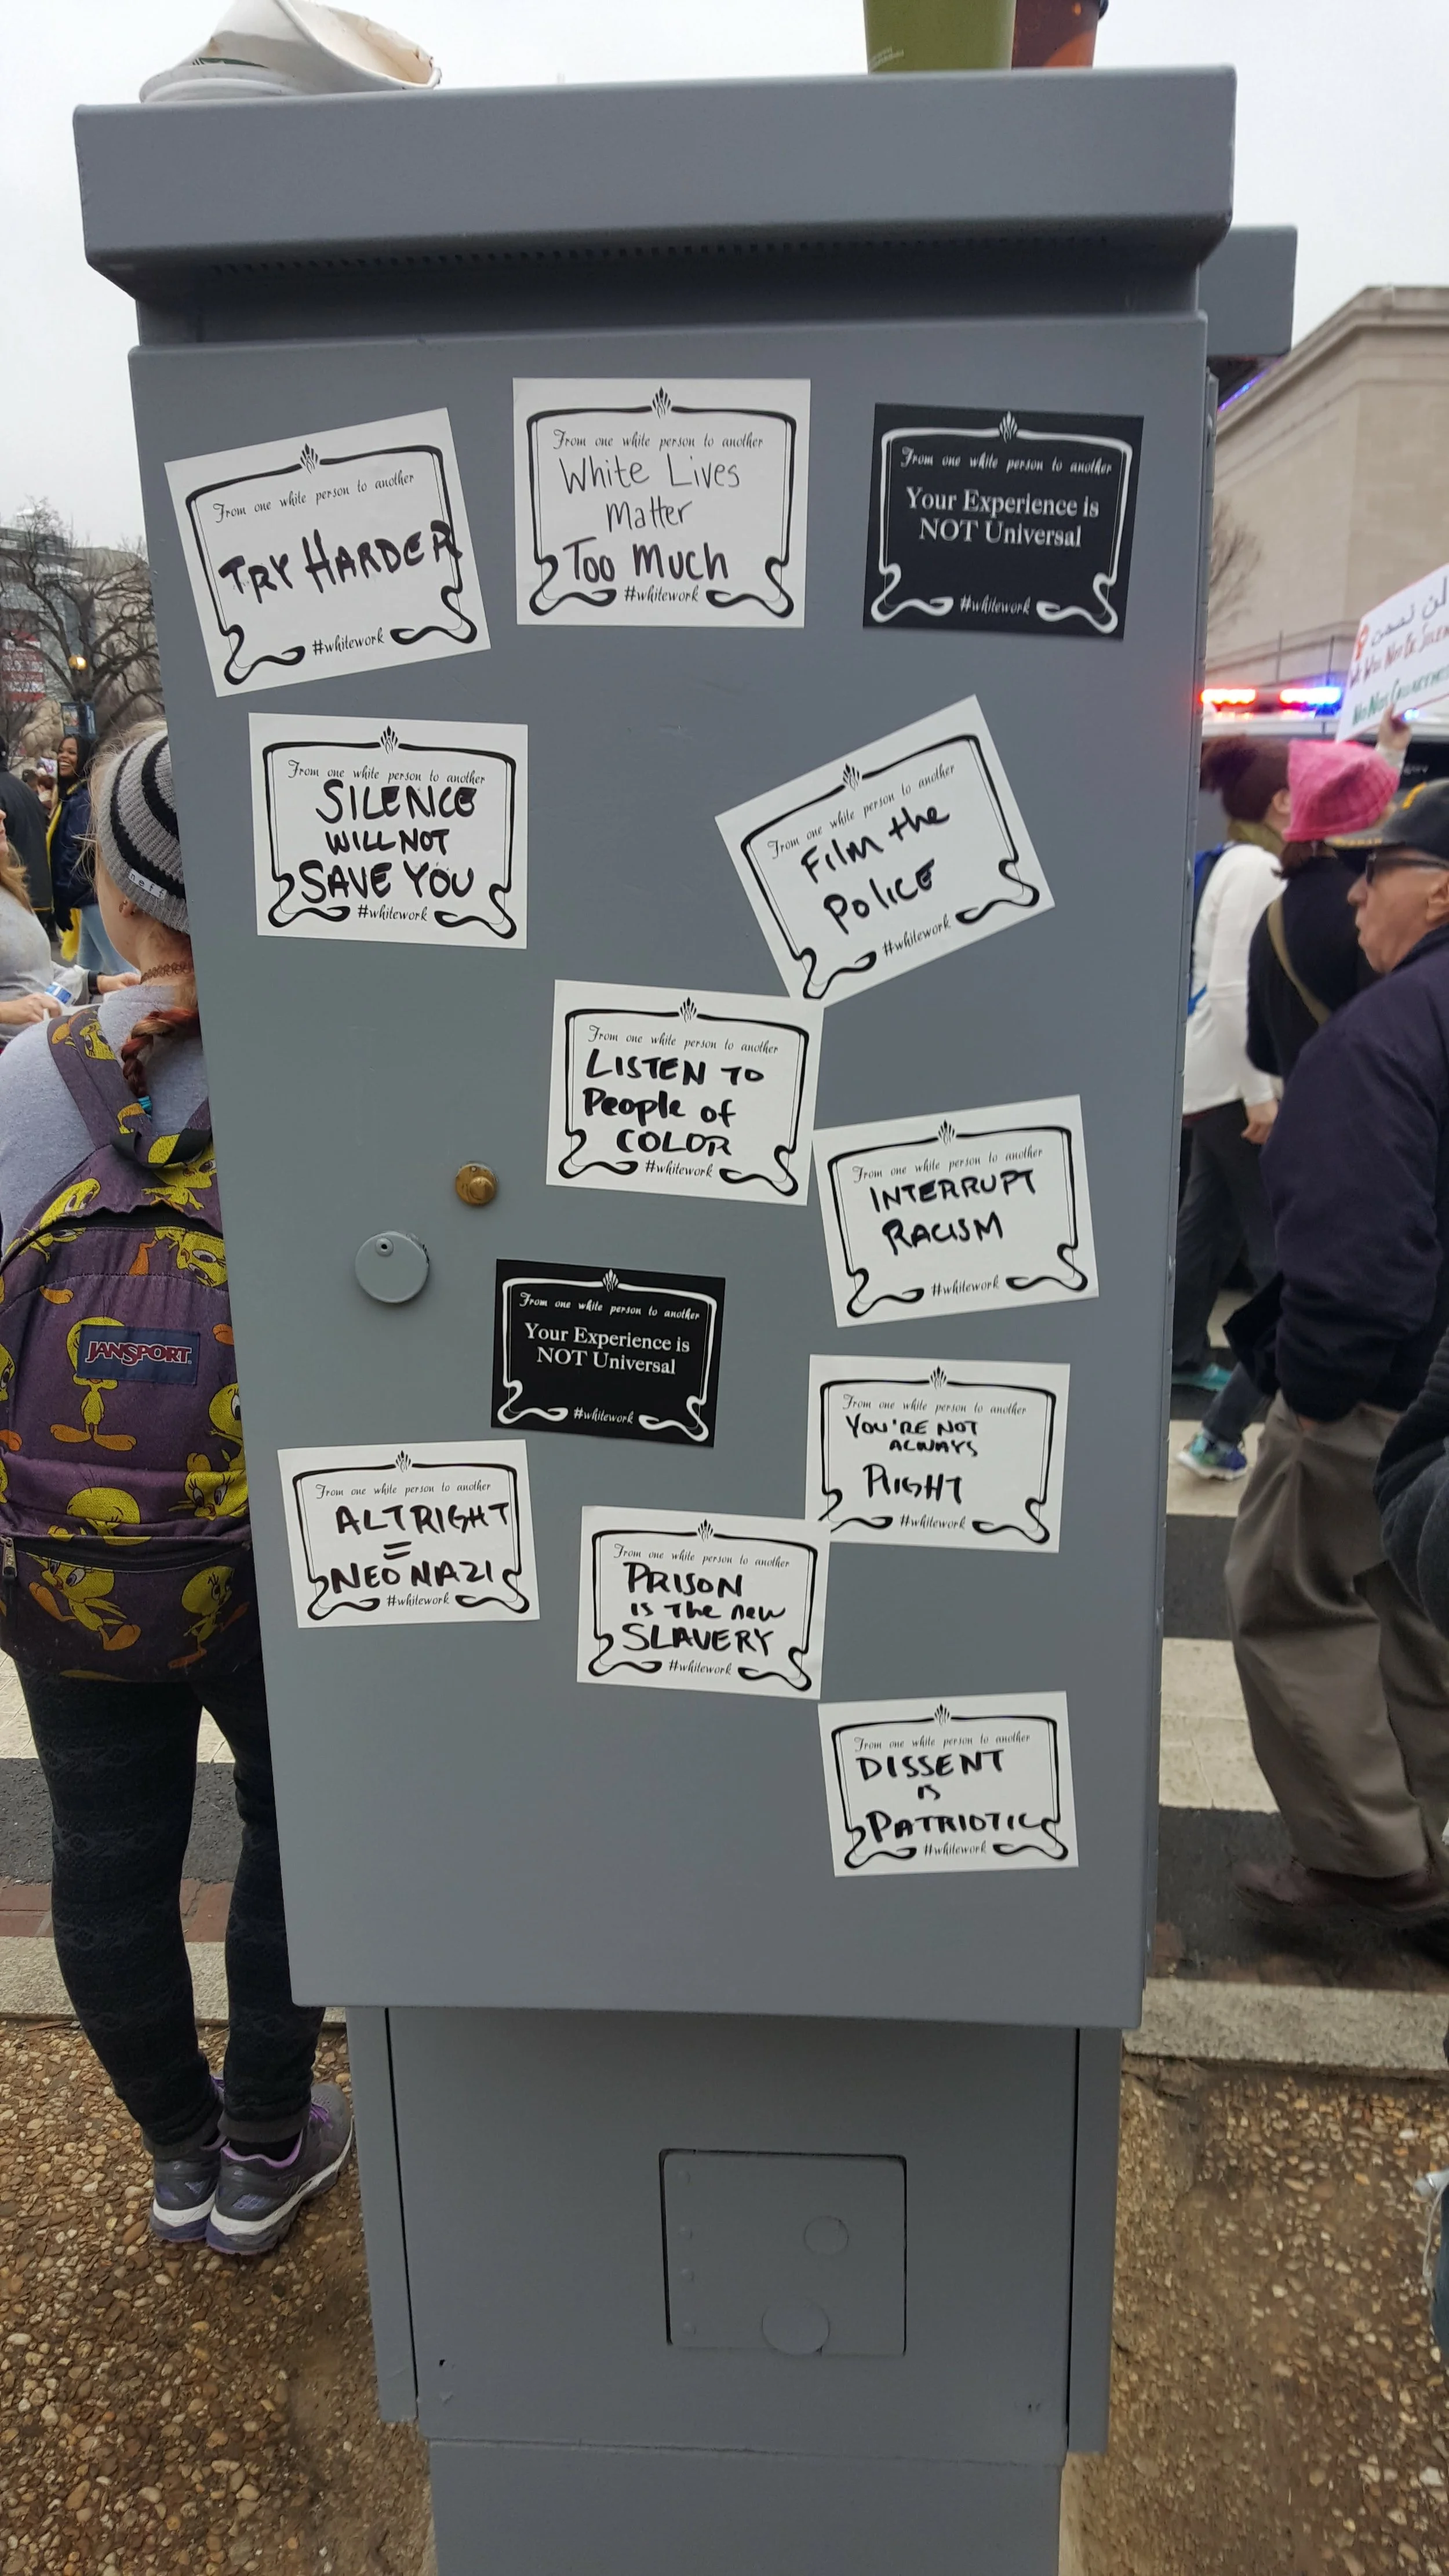 From one white person to another
TRY HARDER
#whitework
From one white person to another
White Lives
Matter
Too Much
#whitework
From one white person to another
Your Experience is
NOT Universal
#whitework
From one white person to another
SILENCE
WILL NOT
SAVE YOU
#whitework
From one white person to another
Film the
Police
#whitework
From one white person to another
LISTEN TO
People of
COLOR
#whitework
From one white person to another
INTERRUPT
RACISM
#whitework
From one white person to another
Your Experience is
NOT Universal
#whitework
From one white person to another
YOU'RE NOT
ALWAYS
RIGHT
#whitework
From one white person to another
ALTRIGHT
=
NEO NAZI
#whitework
From one white person to another
PRISON
is The new
SLAVERY
#whitework
From one white person to another
DISSENT
IS
PATRIOTIC
#whitework
neff
JANSPORT
لن نصمت
WE WILL NOT BE